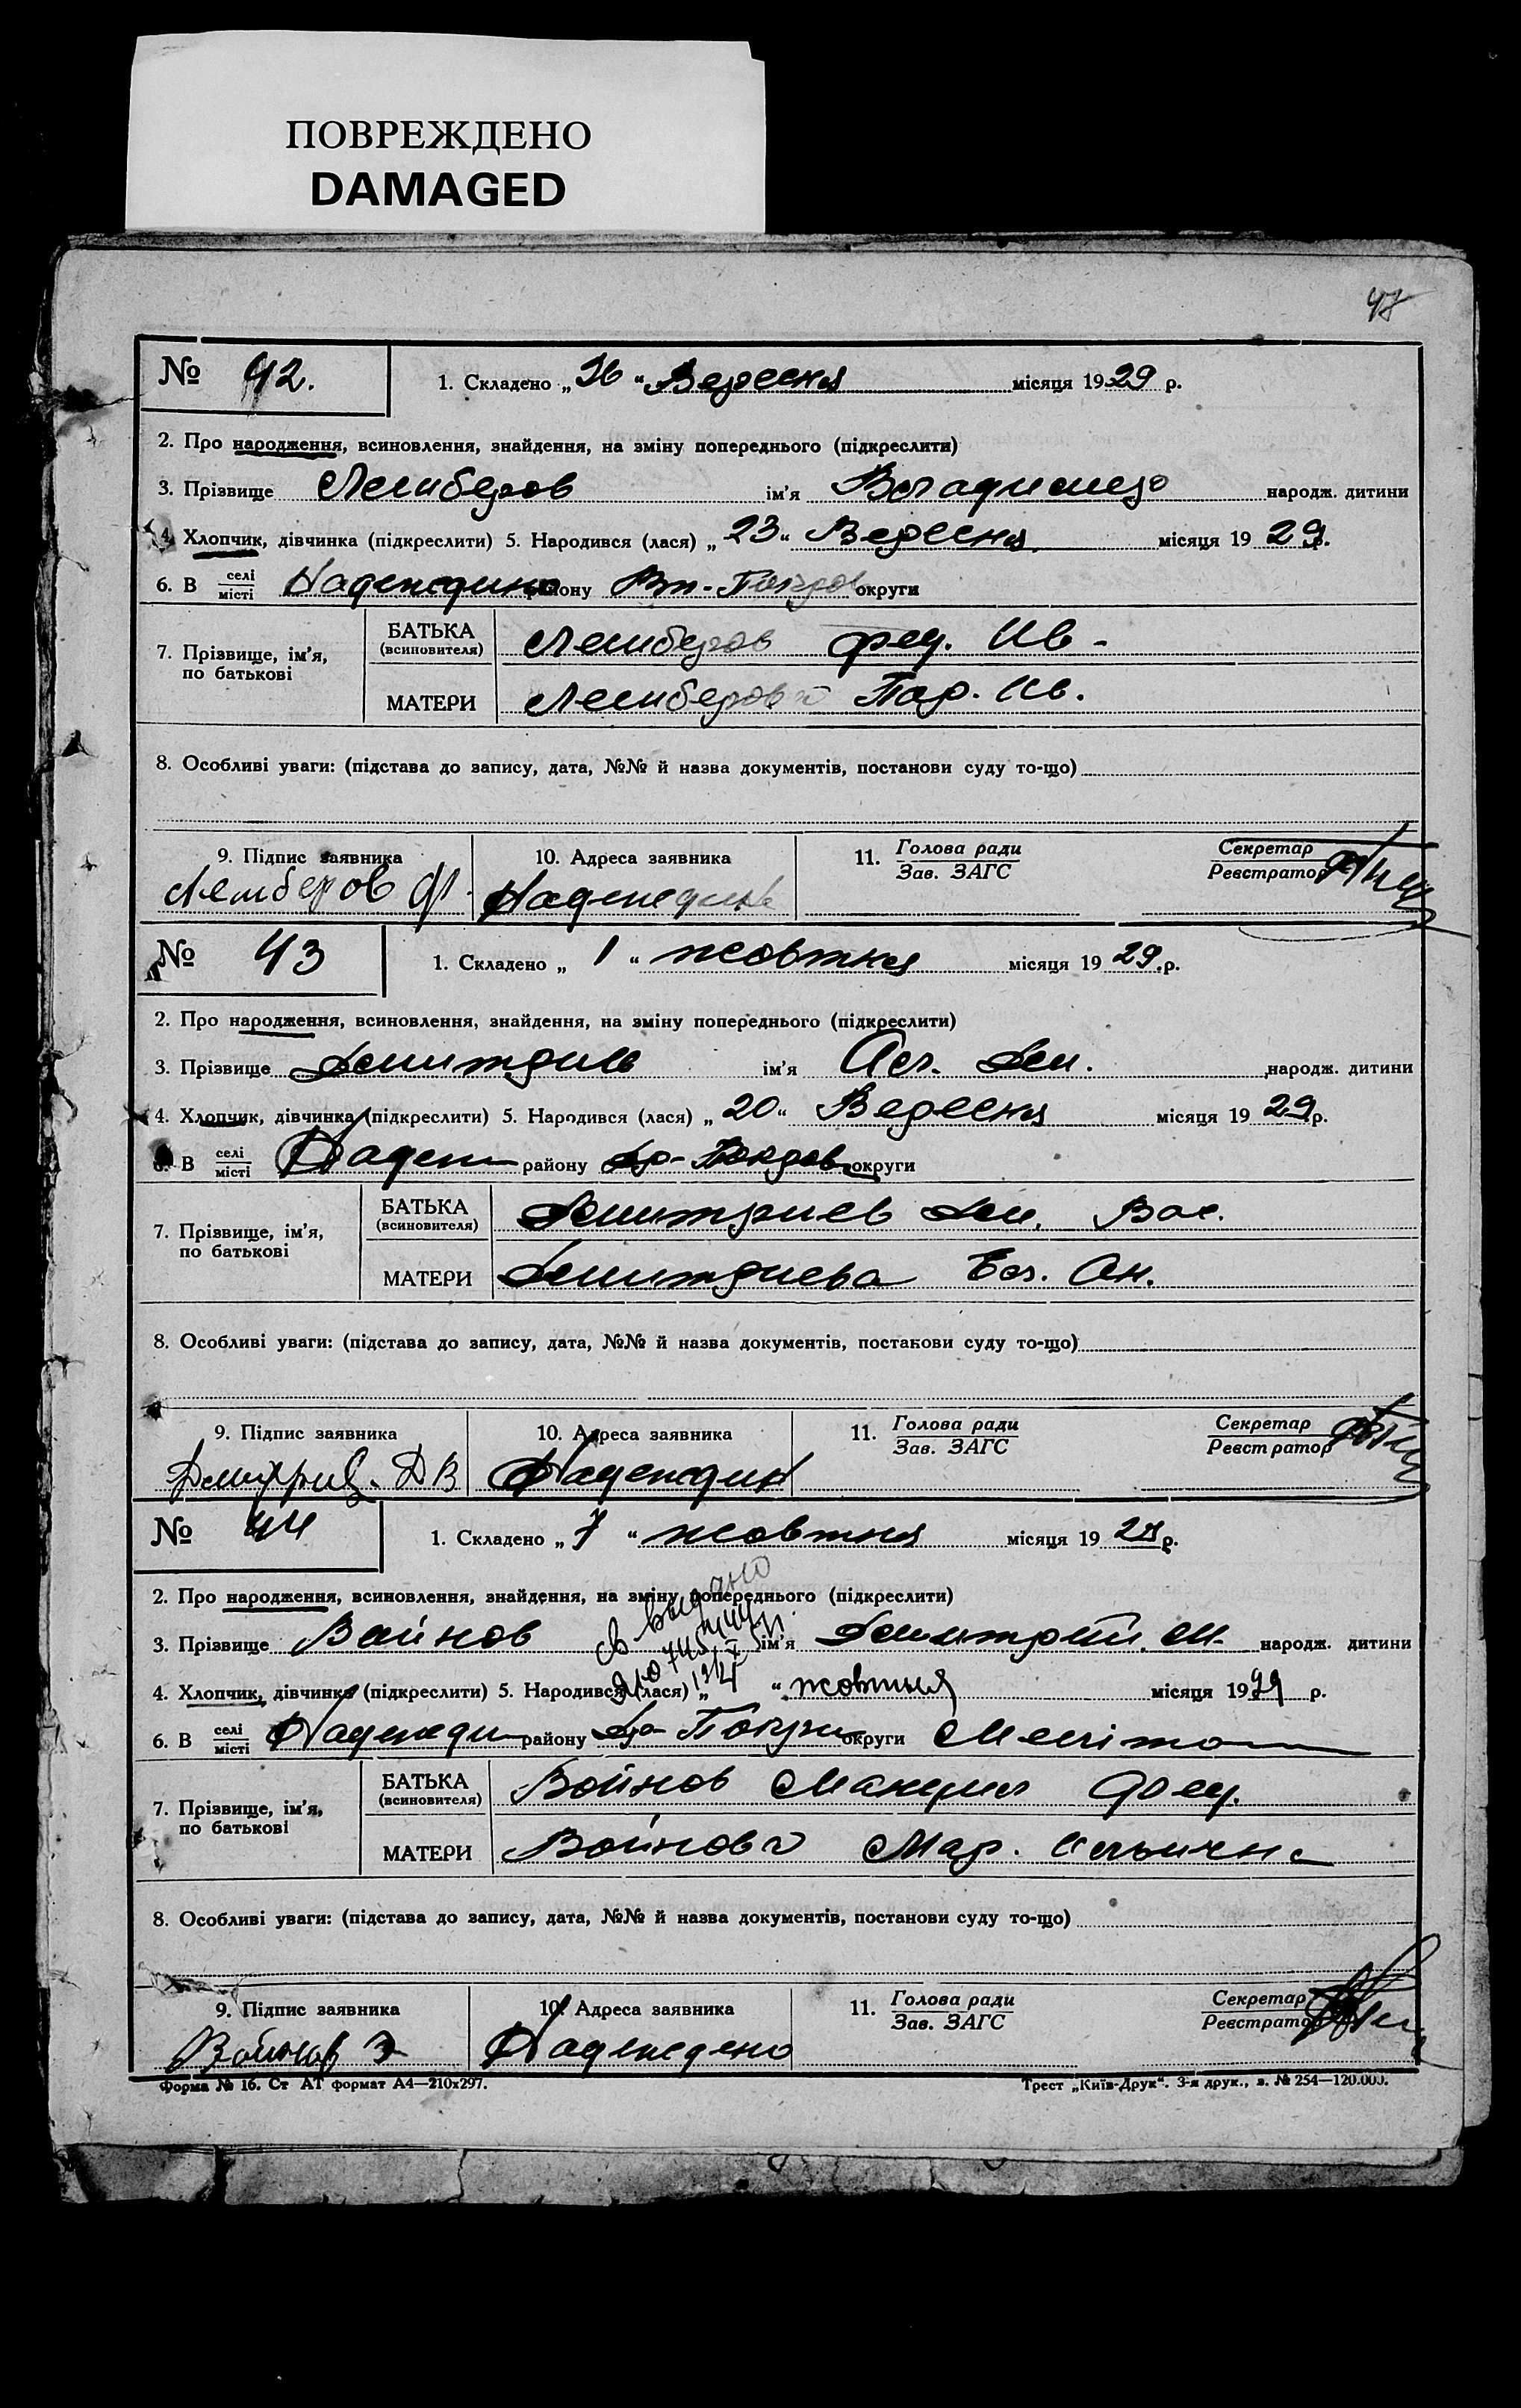 ПОВРЕЖДЕНО
DAMAGED
47
№ 42. 1. Складено „ 26 “ Вересня місяця 1929 р.
2. Про народження, всиновлення, знайдення, на зміну попереднього (підкреслити)
3. Прізвище Лемберов ім'я народж. дитини
4. Хлопчик, дівчинка (підкреслити) 5. Народився (лася) „ 23 “ Вересня місяця 1929 р.
6. В селі місті Надеждино району Вп-Покров округи
7. Прізвище, ім'я, по батькові БАТЬКА (всиновителя) Лемберов Фед. Ив -
МАТЕРИ Лемберова Пар. Ив.
8. Особливі уваги: (підстава до запису, дата, №№ й назва документів, постанови суду то-що)
9. Підпис заявника 10. Адреса заявника 11. Голова ради Зав. ЗАГС Секретар Реєстратор
Лемберов Ф. Надеждин
№ 43 1. Складено „ 1 “ жовтня місяця 1929. р.
2. Про народження, всиновлення, знайдення, на зміну попереднього (підкреслити)
3. Прізвище ім'я Ал. Дм. народж. дитини
4. Хлопчик, дівчинка (підкреслити) 5. Народився (лася) „ 20 “ Вересня місяця 1929 р.
6. В селі місті Надеж району Др-Покров округи
7. Прізвище, ім'я, по батькові БАТЬКА (всиновителя) Дмитриев Дм. Вас.
МАТЕРИ Дмитриева Ел. Ан.
8. Особливі уваги: (підстава до запису, дата, №№ й назва документів, постанови суду то-що)
9. Підпис заявника 10. Адреса заявника 11. Голова ради Зав. ЗАГС Секретар Реєстратор
Дмитриев. Д В Надеждин
№ 44 1. Складено „ 7 “ жовтня місяця 1929 р.
2. Про народження, всиновлення, знайдення, на зміну попереднього (підкреслити)
св выдано
3. Прізвище Войнов ім'я Дмитрий. М. народж. дитини
4. Хлопчик, дівчинка (підкреслити) 5. Народився (лася) „ 4 “ жовтня місяця 1929 р.
6. В селі місті Надежди району Др-Покри округи Меліто
7. Прізвище, ім'я, по батькові БАТЬКА (всиновителя) Войнов Фед.
МАТЕРИ Войнова Мар. Ильична
8. Особливі уваги: (підстава до запису, дата, №№ й назва документів, постанови суду то-що)
9. Підпис заявника 10. Адреса заявника 11. Голова ради Зав. ЗАГС Секретар Реєстратор
Войнов Надеждено
Форма № 16. Ст АТ формат А4—210х297. Трест „Київ-Друк“. 3-я друк., з. № 254—120.000.